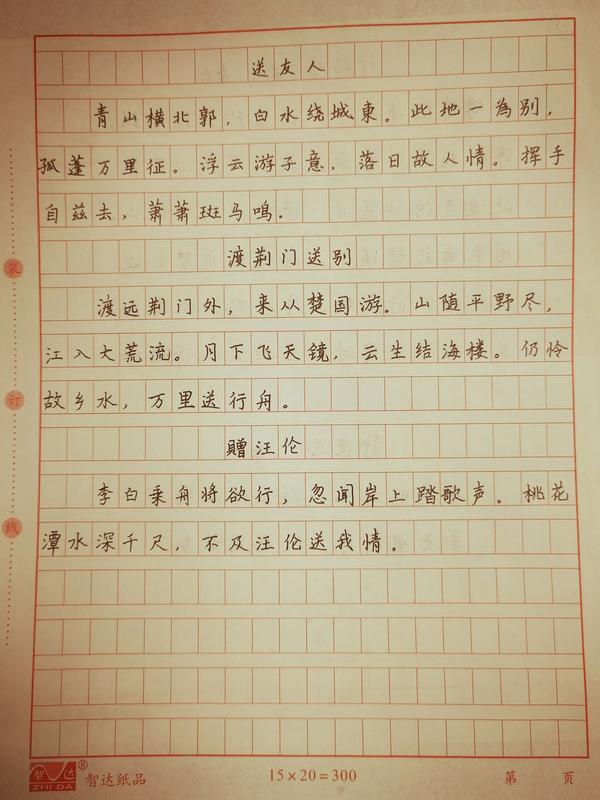 送友人
青山横北郭，白水绕城東。此地一為别，
孤蓬万里征。浮云游子意，落日故人情。挥手
自兹去，萧萧斑马鸣。
渡荆门送别
渡远荆门外，来从楚国游。山随平野尽，
江入大荒流。月下飞天镜，云生结海楼。仍怜
故乡水，万里送行舟。
贈汪伦
李白乘舟将欲行，忽闻岸上踏歌声。桃花
潭水深千尺，不及汪伦送我情。
装
订
线
智达
ZHI DA
®
智达纸品
15×20=300
第 页